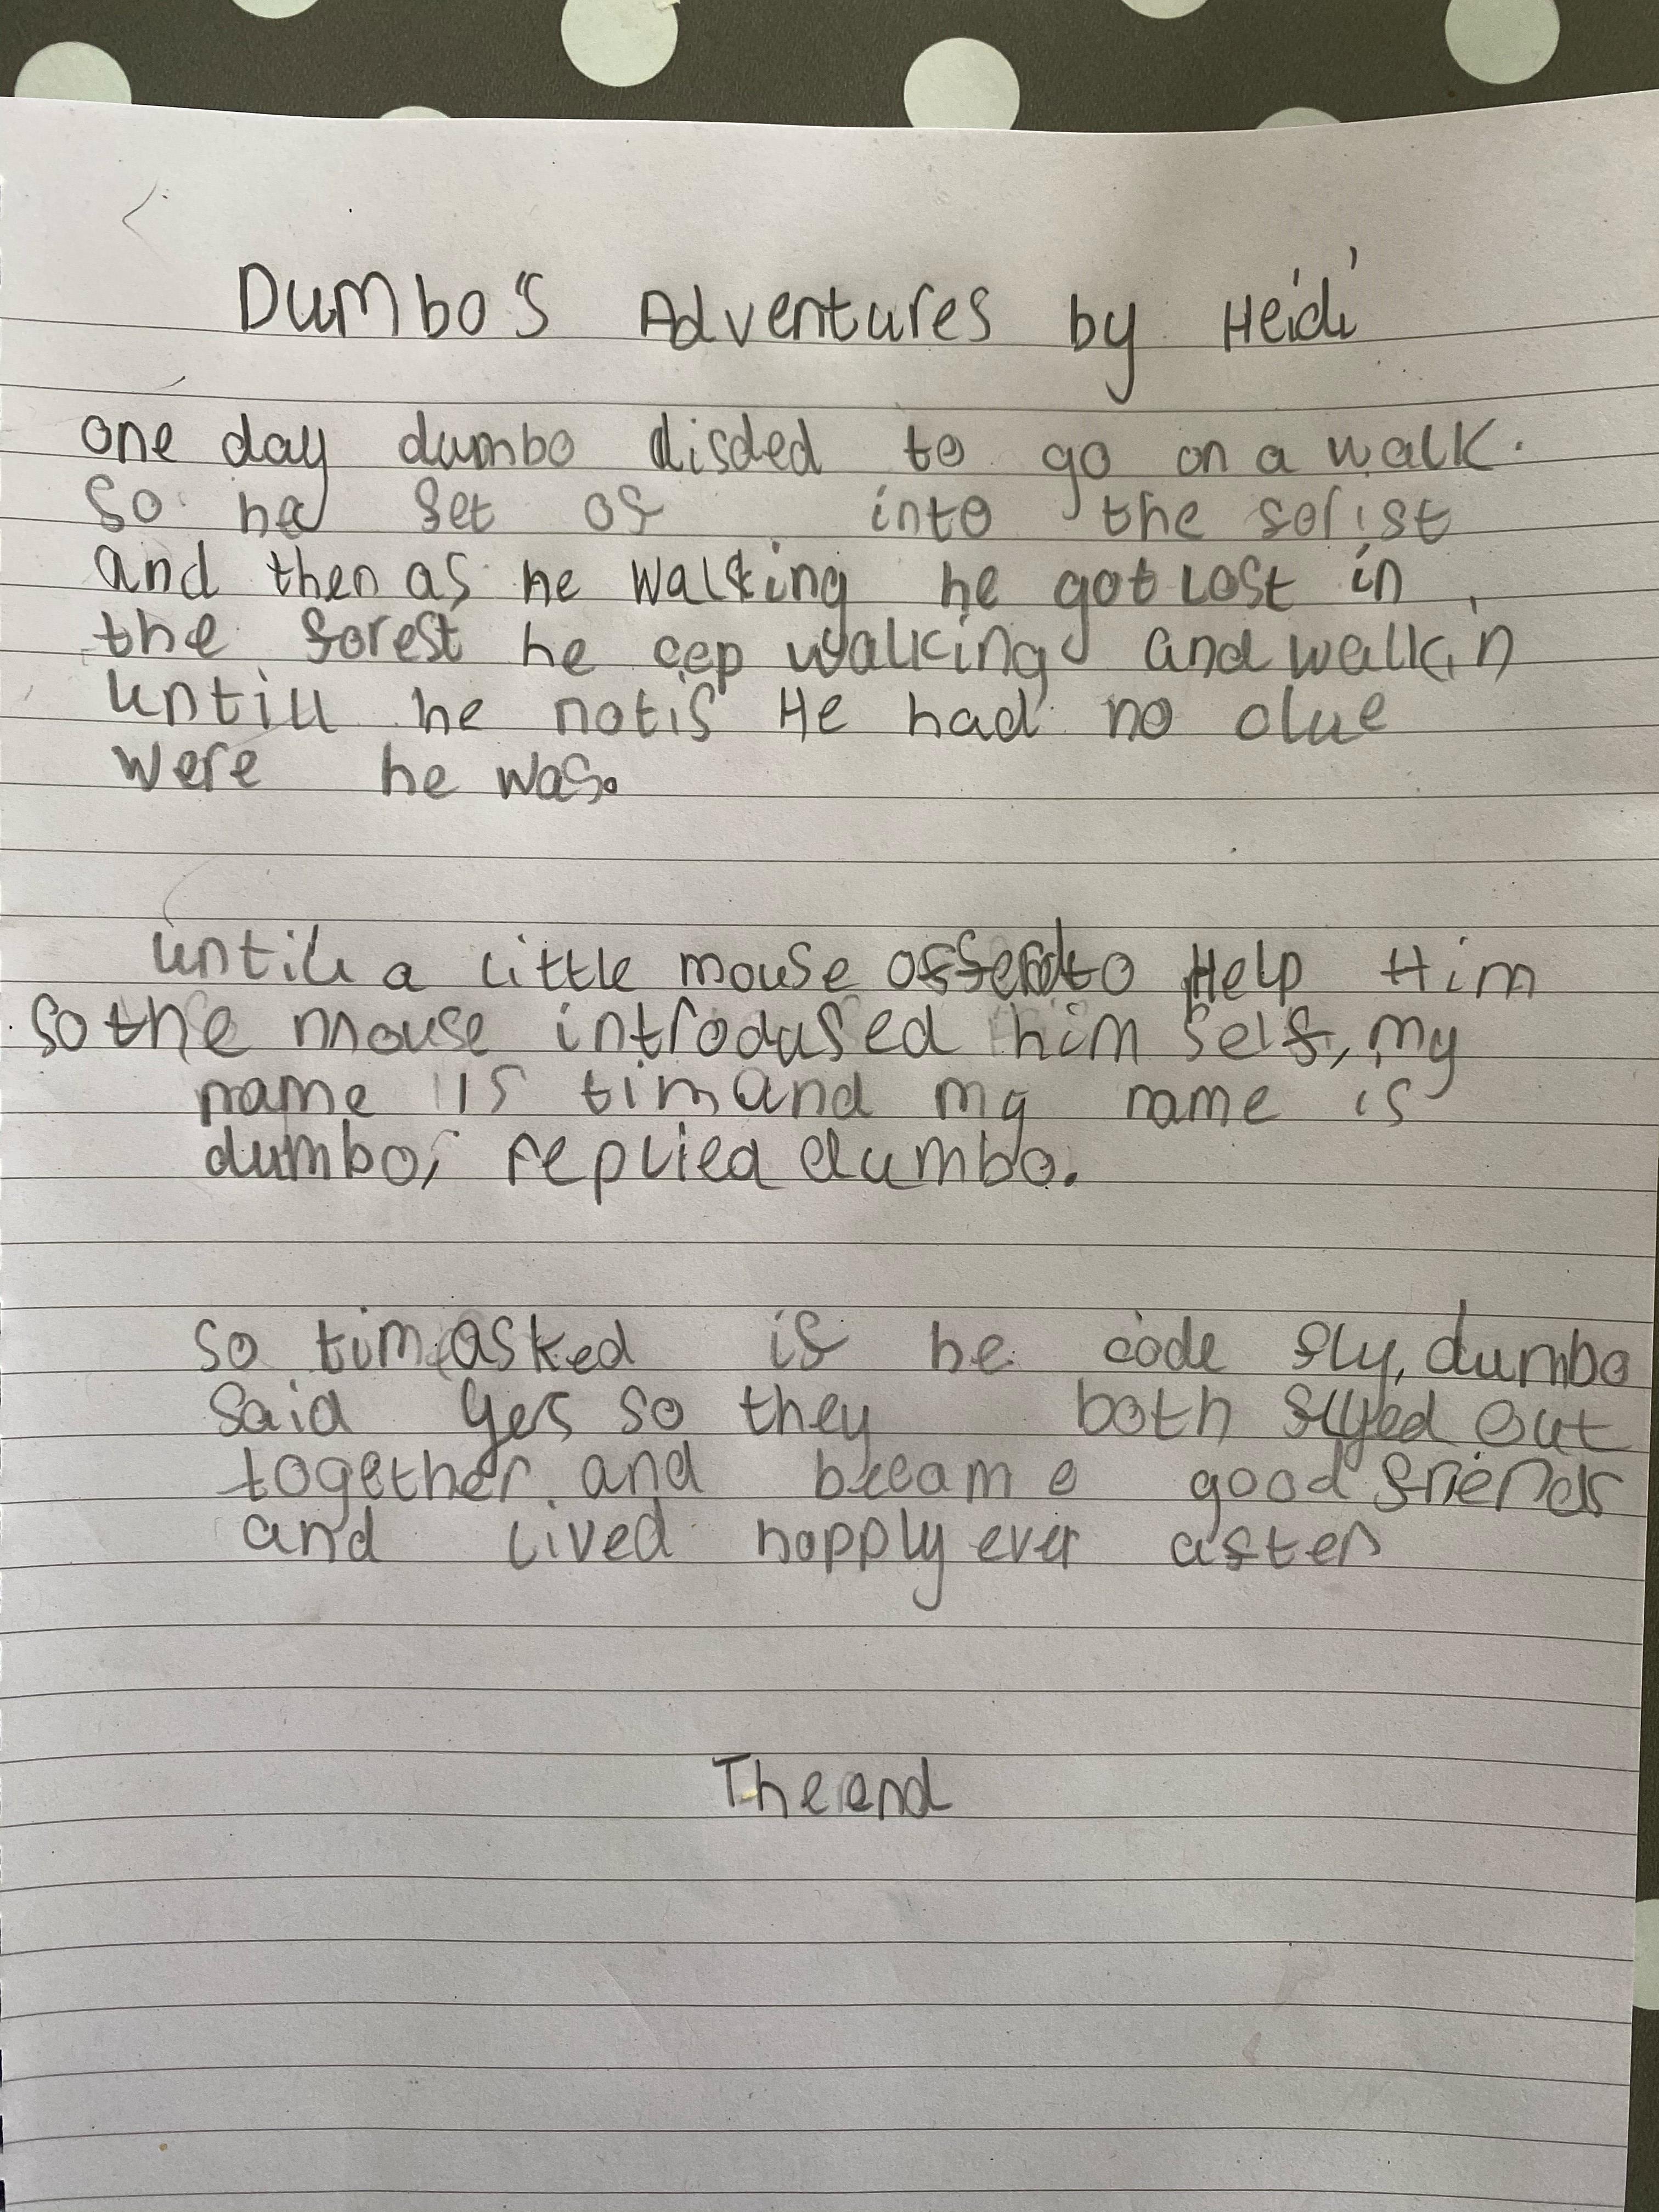 Dumbo's Adventures by Heidi
one day dumbo disded to go on a walk.
So he set of into the forist
and then as he walking he got lost in
the forest he cep walking and walkin
untill he notis He had no clue
were he was.
untill a little mouse offerd to Help Him
so the mouse introdused him self, my
name is tim and my name is
dumbo, replied dumbo.
so tim asked if he code fly, dumbo
said yes so they both flyed out
together and became good friends
and lived happly ever after
The end